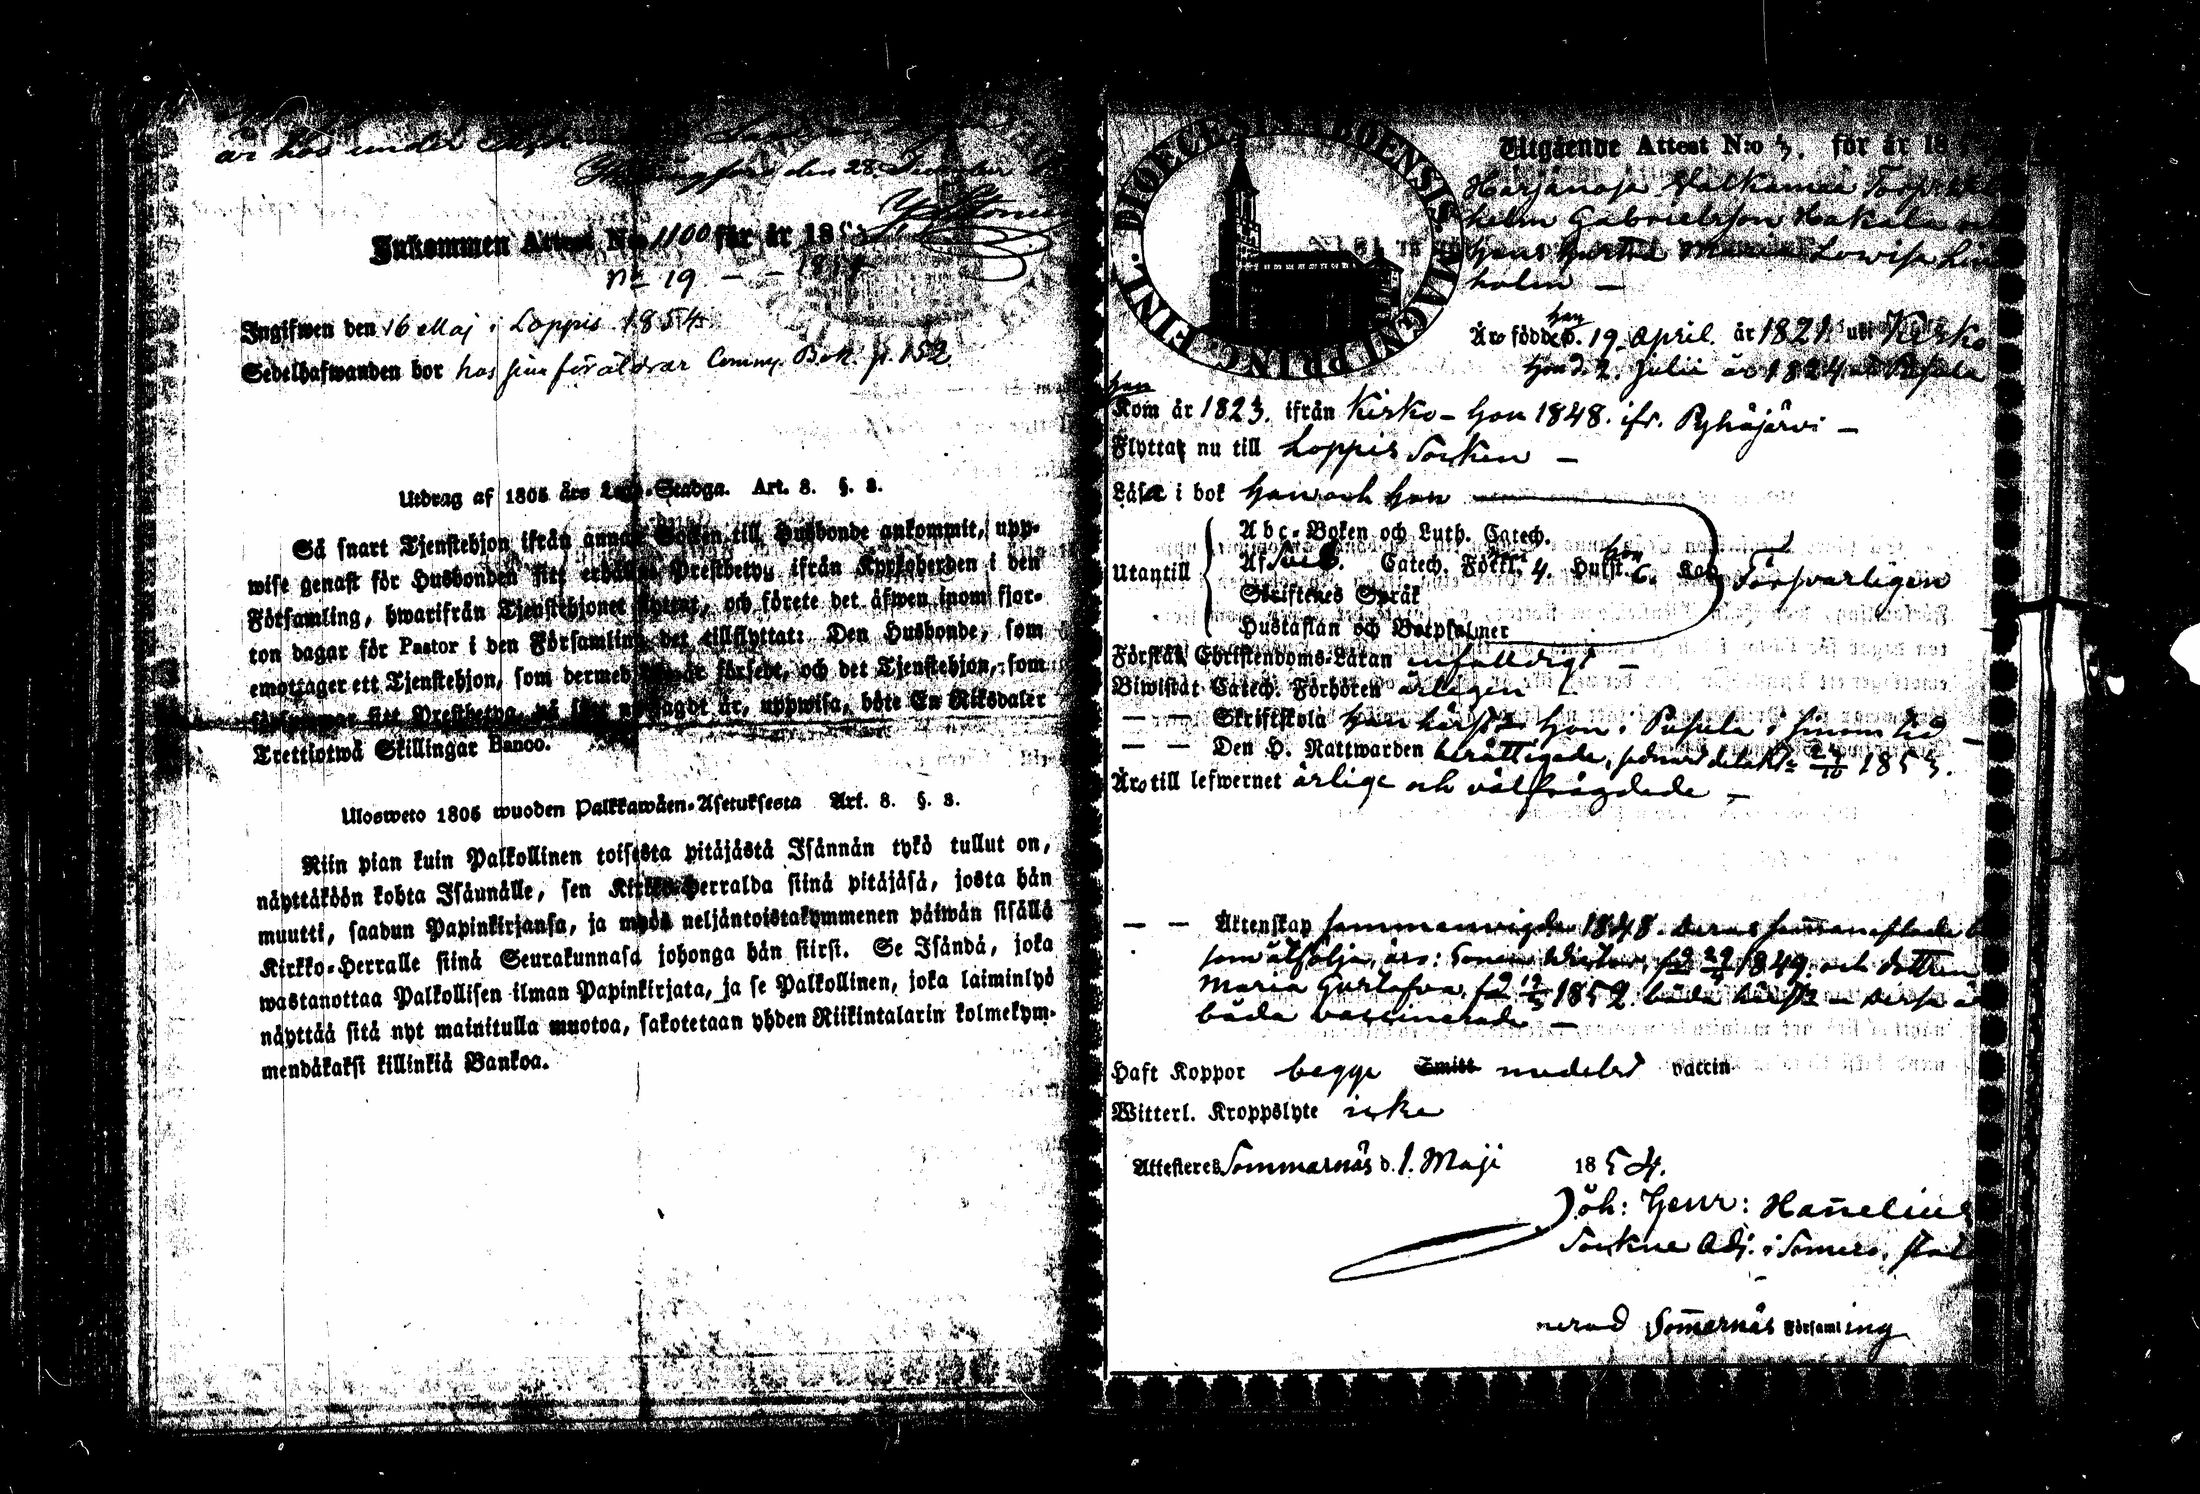 är hos under
den 28 December
Inkommen Attest N:o 1100 för år 185
No 19 — — 1854
Ingifwen den 16 Maj i Loppis 1854
Sedelhafwanden bor hos sina föräldrar Comm. Bok. p. 152
Utdrag af 1805 års Lego-Stadga. Art. 8. §. 8.
Så snart Tjenstehjon ifrån annan Socken till Husbonde ankommit, upp-
wise genast för Husbonden sitt erhållne Prestbetyg ifrån Kyrkoherden i den
Församling, hwarifrån Tjenstehjonet flyttat, och förete det äfwen inom fjor-
ton dagar för Pastor i den Församling det tillflyttat: Den Husbonde, som
emottager ett Tjenstehjon, som dermed försedt, och det Tjenstehjon, som
försummar sitt Prestbetyg, på sätt nu sagdt är, uppwisa, böte En Riksdaler
Trettiotwå Skillingar Banco.
Ulosweto 1805 wuoden Palkkawäen-Asetuksesta Art. 8. §. 8.
Niin pian kuin Palkollinen toisesta pitäjästä Isännän tykö tullut on,
näyttäköön kohta Isännälle, sen Kirkko-Herralda siinä pitäjäsä, josta hän
muutti, saadun Papinkirjansa, ja myös neljäntoistakymmenen päiwän sisällä
Kirkko-Herralle siinä Seurakunnasa johonga hän siirsi. Se Isändä, joka
wastanottaa Palkollisen ilman Papinkirjata, ja se Palkollinen, joka laiminlyö
näyttää sitä nyt mainitulla muotoa, sakotetaan yhden Riikintalarin kolmekym-
mendäkaksi killinkiä Bankoa.
DIOECESIS ABOENSIS MAGNI PRINC. FINL.
Utgående Attest N:o 3. för år 18
Harjänoja Walkamaa Torp
helm Gabrielsson Hakala och
hans hustru Maria Lowisa Lind
holm —
han
Äro födde d. 19 April. år 1821. uti Kisko
hon d. 2. Julii år 1824. i Pusula
han
Kom år 1823. ifrån Kisko — hon 1848. ifr. Pyhäjärvi —
Flytta nu till Loppis Socken —
Läsa i bok han och hon
Utantill
Abc-Boken och Luth. Catech.
Af Catech. Förkl. han 4. Hust. hon 6. Kap
Skriftenes Språk
Hustaflan och Botpsalmer
Försvarligen
Förstå Christendoms-Läran enfaldigt —
Biwistat Catech. Förhören årligen —
— — Skriftskola han härst. hon i Pusula i sinom tid —
— — Den H. Nattwarden berättigade, sednast delakt. 1853.
Äro till lefwernet ärlige och välfrägdade —
— — Äktenskap sammanvigde 1848. deras sammanaflade b
som åtfölja, äro: Sonen 1849. och dottren
Maria Gustafva, föd 1852. båda härst. — dessa ä
båda vaccinerade —
Haft Koppor begge Smitt medelst vaccin
Witterl. Kroppslyte icke
Attesteres Sommarnäs d. 1. Maji 1854.
Joh: Henr: Hanelius
Sockne Adj. i Somero, stat
nerad Somarnäs Församling